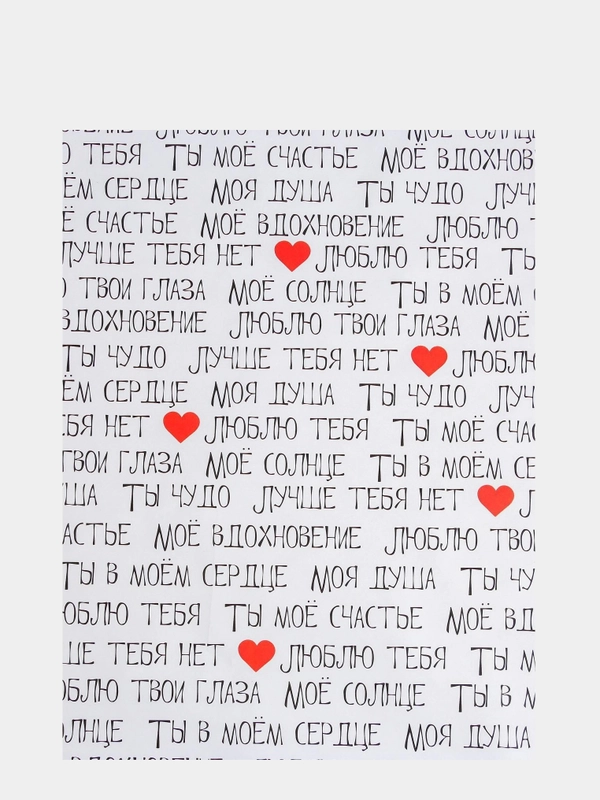 ЛЮБЛЮ ТВОИ ГЛАЗА МОЁ СОЛНЦЕ
ТЕБЯ ТЫ МОЁ СЧАСТЬЕ МОЁ ВДОХНОВ
ЁМ СЕРДЦЕ МОЯ ДУША ТЫ ЧУДО ЛУЧ
Ё СЧАСТЬЕ МОЁ ВДОХНОВЕНИЕ ЛЮБЛЮ
ЛУЧШЕ ТЕБЯ НЕТ ЛЮБЛЮ ТЕБЯ ТЫ
ТВОИ ГЛАЗА МОЁ СОЛНЦЕ ТЫ В МОЁМ
ВДОХНОВЕНИЕ ЛЮБЛЮ ТВОИ ГЛАЗА МОЁ
ТЫ ЧУДО ЛУЧШЕ ТЕБЯ НЕТ ЛЮБЛЮ
ЁМ СЕРДЦЕ МОЯ ДУША ТЫ ЧУДО ЛУЧ
ЕБЯ НЕТ ЛЮБЛЮ ТЕБЯ ТЫ МОЁ СЧАС
ТВОИ ГЛАЗА МОЁ СОЛНЦЕ ТЫ В МОЁМ СЕ
ША ТЫ ЧУДО ЛУЧШЕ ТЕБЯ НЕТ Л
АСТЬЕ МОЁ ВДОХНОВЕНИЕ ЛЮБЛЮ ТВОИ
ТЫ В МОЁМ СЕРДЦЕ МОЯ ДУША ТЫ ЧУ
ЮБЛЮ ТЕБЯ ТЫ МОЁ СЧАСТЬЕ МОЁ ВД
ШЕ ТЕБЯ НЕТ ЛЮБЛЮ ТЕБЯ ТЫ М
БЛЮ ТВОИ ГЛАЗА МОЁ СОЛНЦЕ ТЫ В М
ЛНЦЕ ТЫ В МОЁМ СЕРДЦЕ МОЯ ДУША